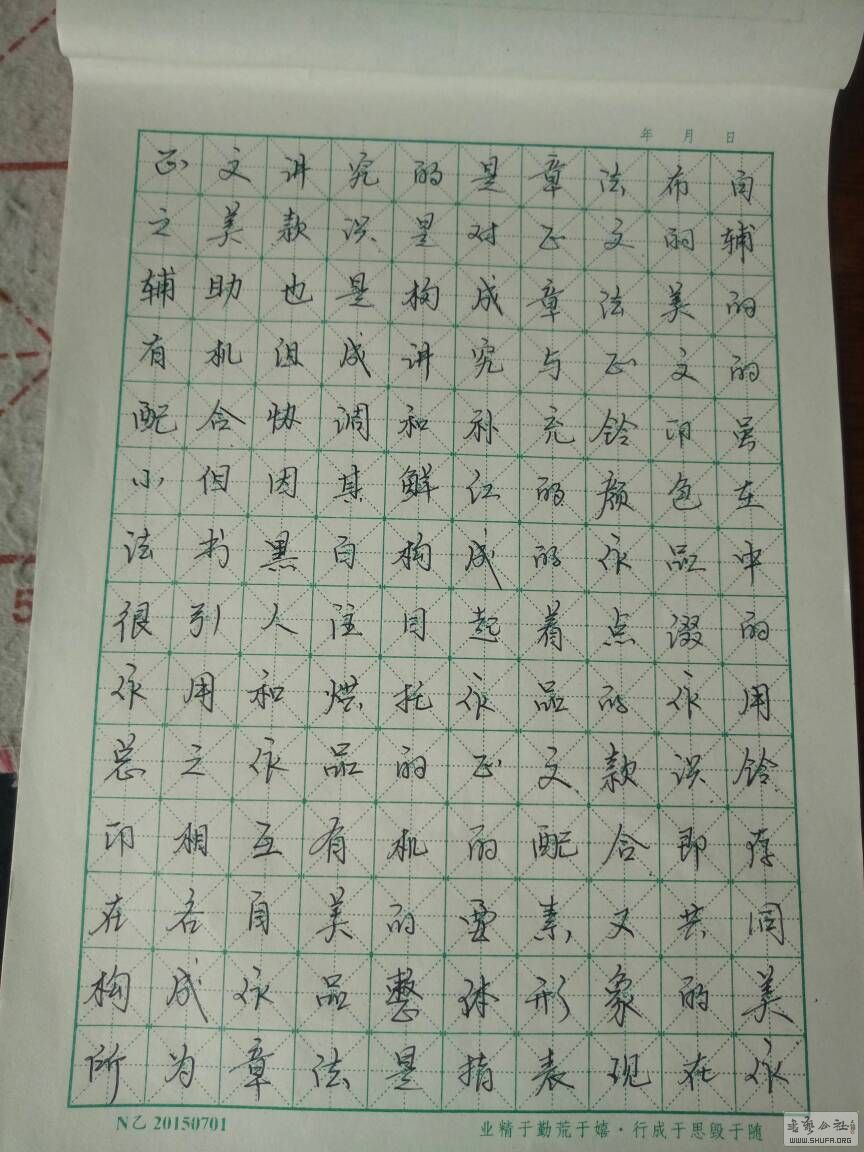 年 月 日
正文讲究的是章法布白
之美款识是对正文的辅
辅助也是构成章法美的
有机组成讲究与正文的
配合协调和补充铃印虽
小但因其鲜红的颜色在
法书黑白构成的作品中
很引人注目起着点缀的
作用和烘托作品的作用
总之作品的正文款识铃
印相互有机的配合即存
在各自美的要素又共同
构成作品整体形象的美
所为章法是指表现在作
N乙 20150701
业精于勤荒于嬉·行成于思毁于随
书艺公社
WWW.SHUFA.ORG